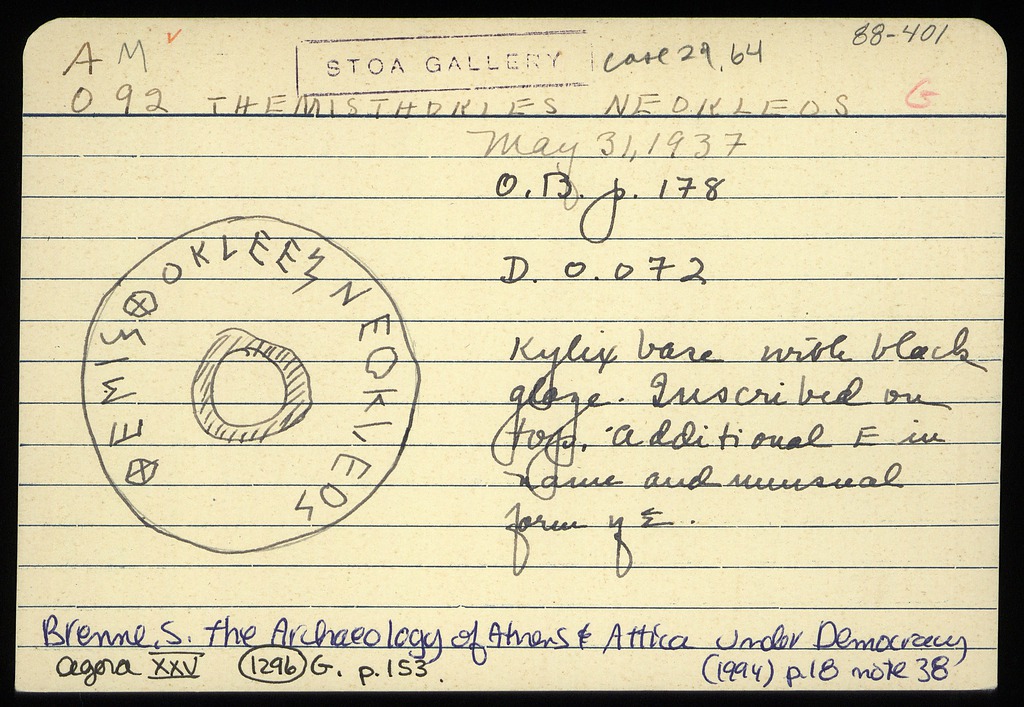 AM
88-401
STOA GALLERY case 29, 64
092 THEMISTHOKLES NEOKLEOS G
May 31, 1937
O.B. p. 178
D. O. 072
⊗EMIS⊗OKLEES NEOKLEOS
Kylix base with black
glaze. Inscribed on
top. Additional E in
name and unusual
form of Σ.
Brenne, S. The Archaeology of Athens & Attica Under Democracy
(1994) p.18 note 38
Agora XXV 1296 G. p. 153.